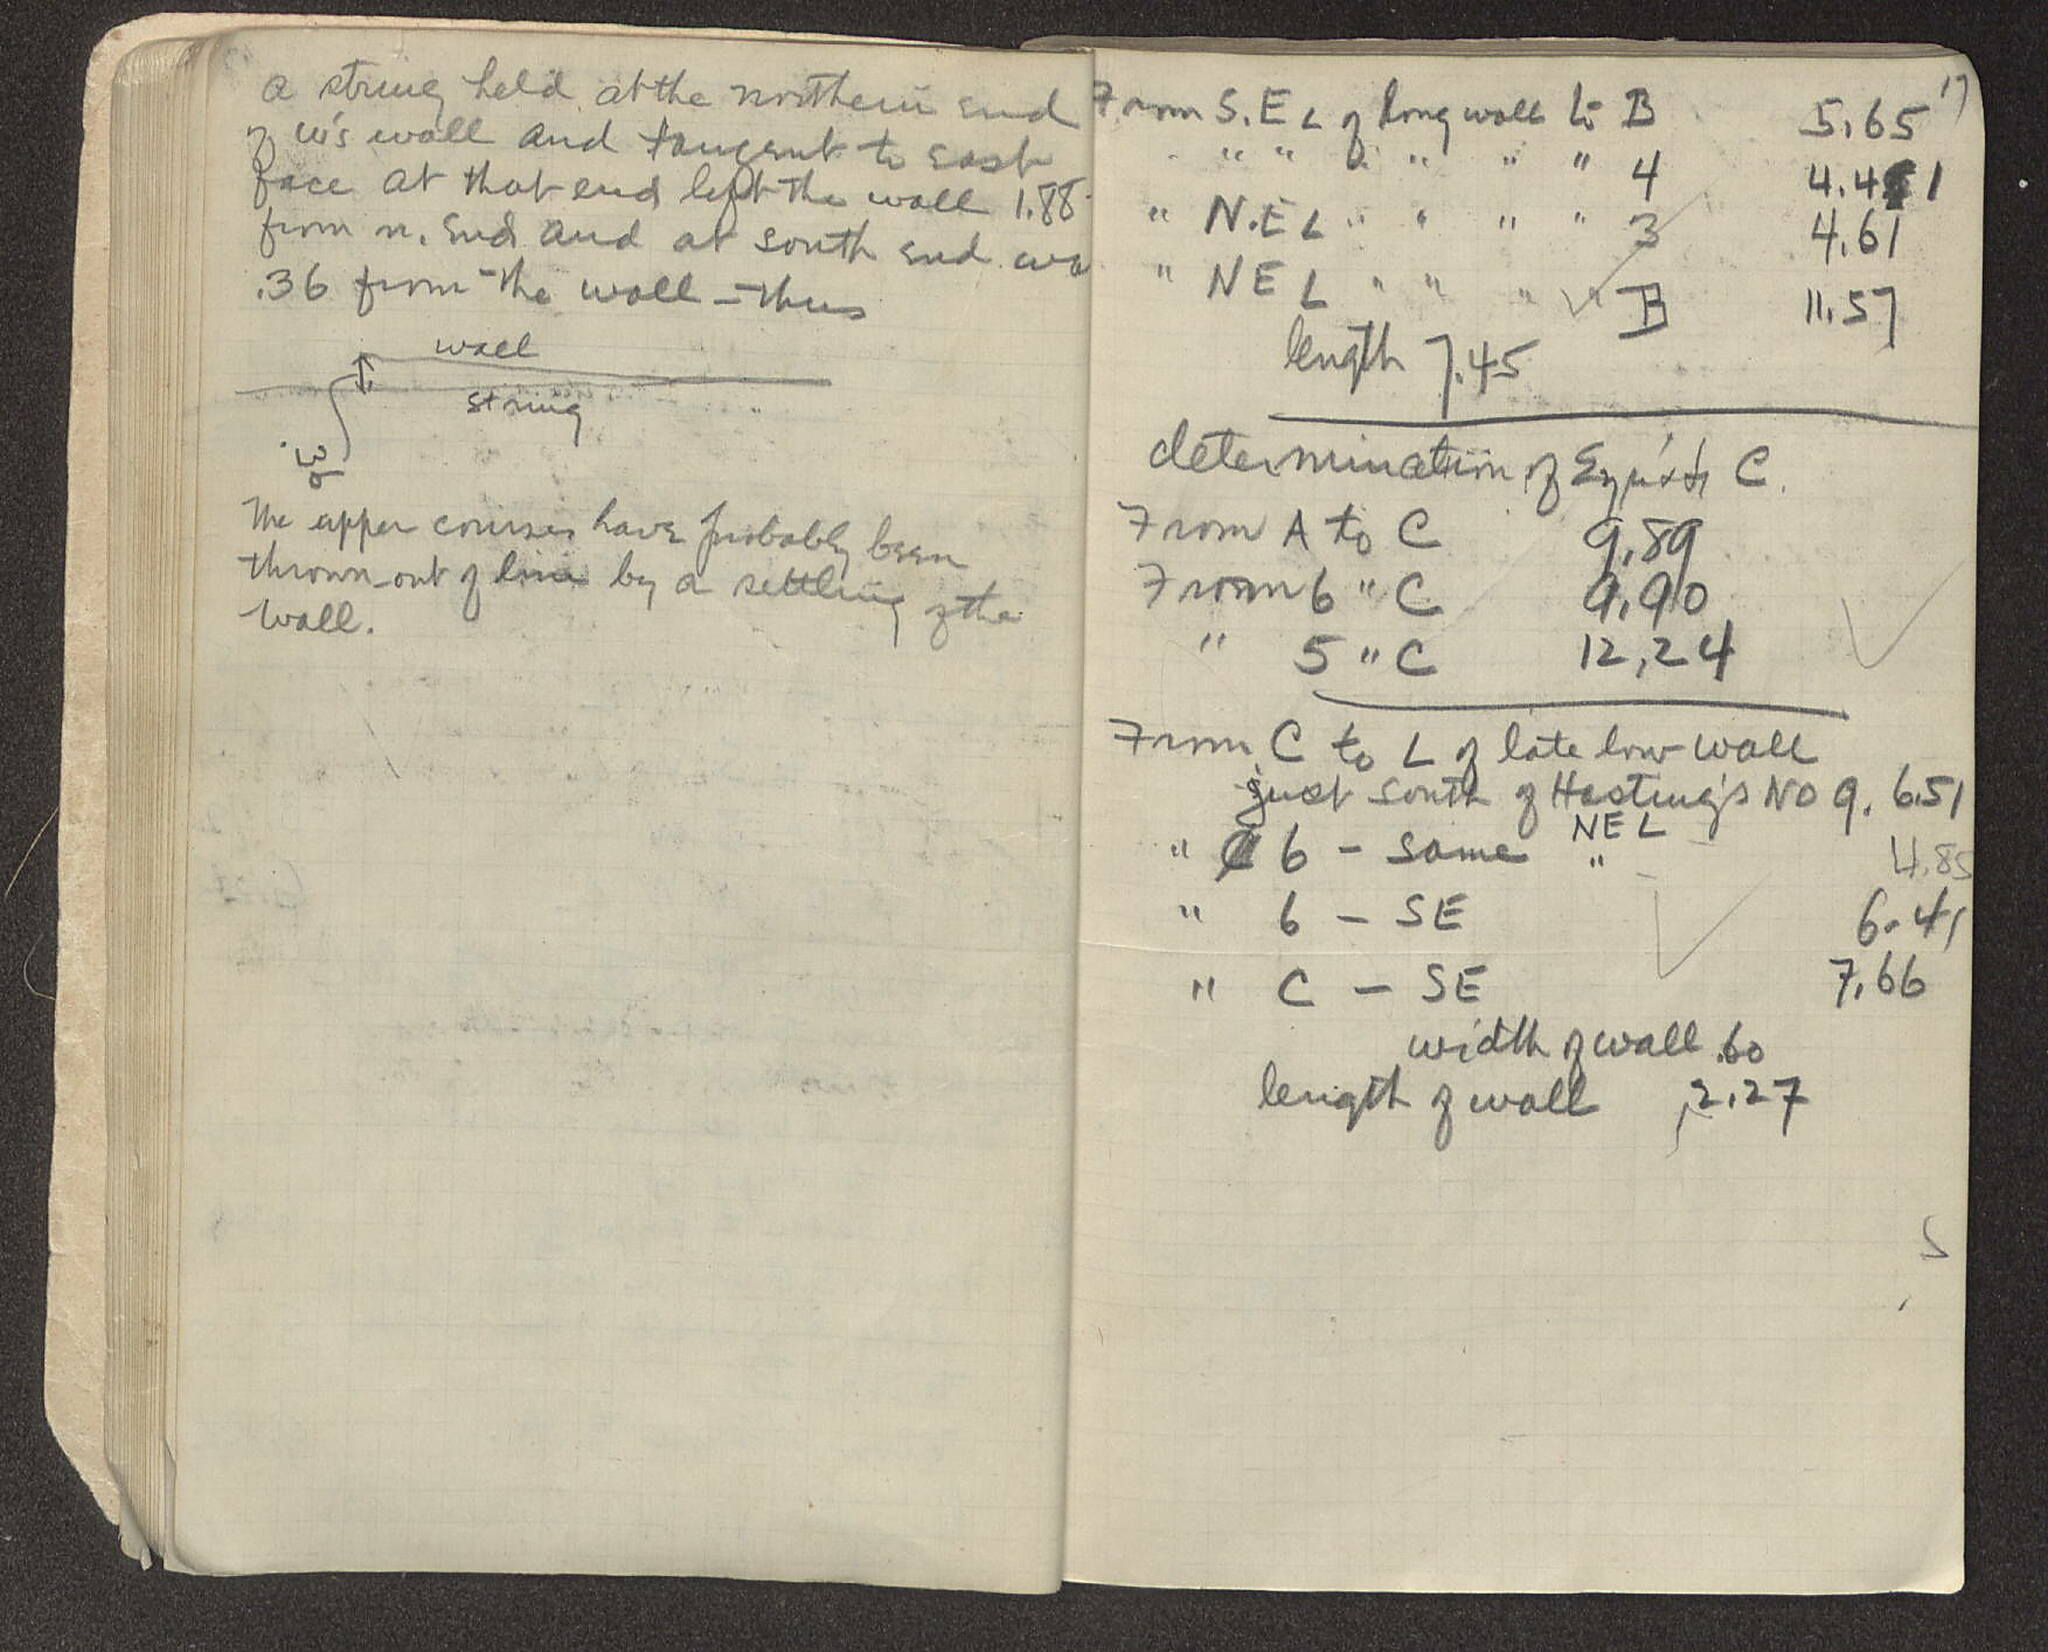 a string held at the northern end
of W's wall and tangent to east
face at that end left the wall 1.88
from n. end and at south end wa
.36 from the wall – thus
wall
string
The upper courses have probably been
thrown out of line by a settling of the
wall.
17
From S.E L of long wall to B 5.65
" " " " " " 4 4.41
" N.E L " " " " 3 4.61
" N E L " " " " B 11.57
length 7.45
determination of C.
From A to C 9.89
From 6 " C 9.90
" 5 " C 12.24
From C to L of late low wall
just south of Hasting's NO 9. 6.51
NE L
" 6 – same " 4.85
" 6 – SE 6.41
" C – SE 7.66
width of wall .60
length of wall 2.27